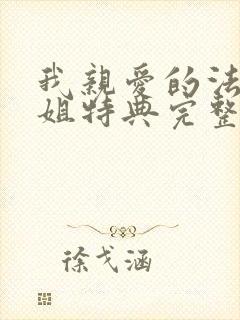 我親愛的法
姐特典完整
徐戈涵